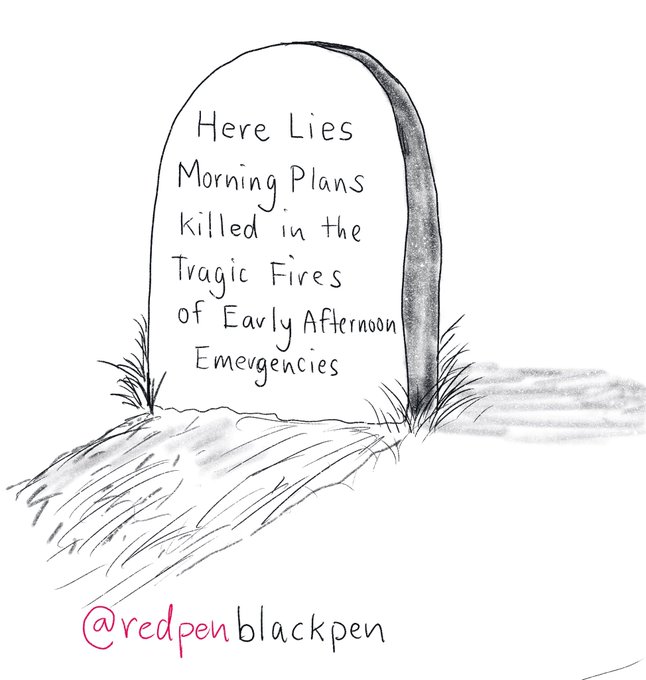 Here Lies
Morning Plans
Killed in the
Tragic Fires
of Early Afternoon
Emergencies
@redpenblackpen